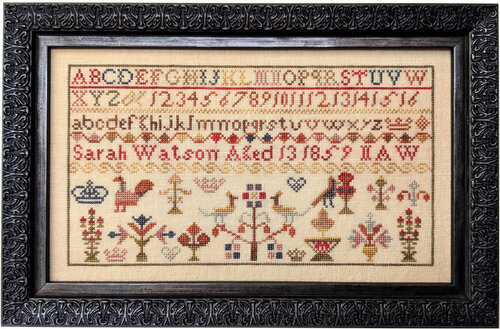 ABCDEFGHIJKLMNOPQRSTUVW
XYZ & 12345678910111213141516
abcdefghijklmnopqrstuvwxyz
Sarah Watson Aged 13 1859 II A W